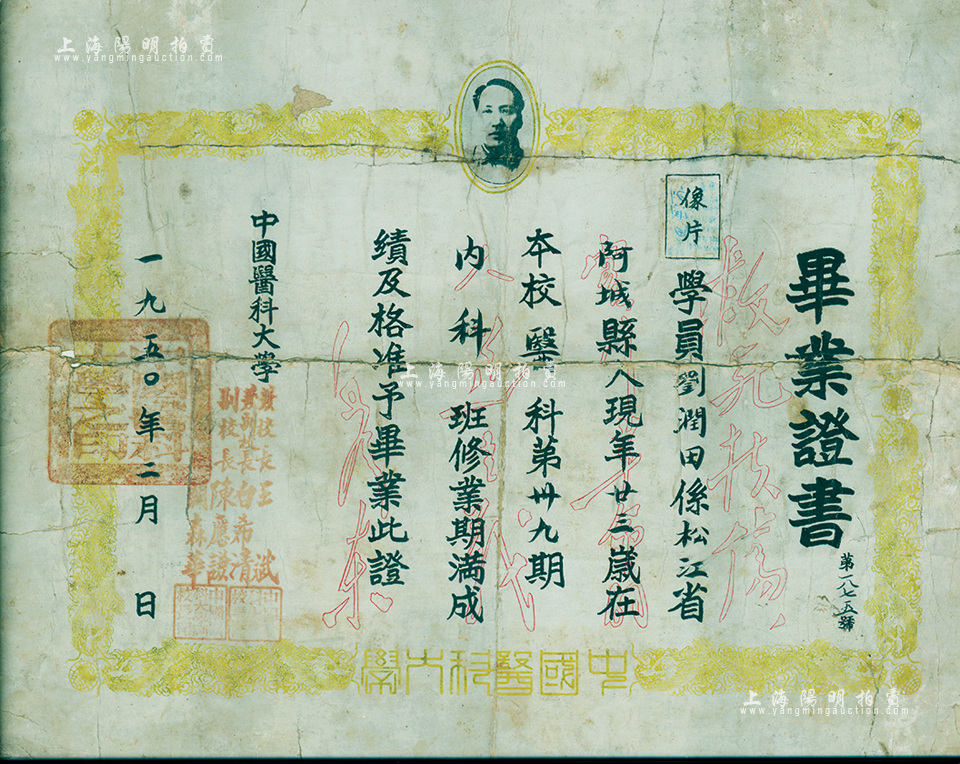 上海陽明拍賣
www.yangmingauction.com
畢業證書
第一八七五號
像片
學員劉潤田係松江省
阿城縣人現年廿三歲在
本校醫 科第卅九期
内科 班修業期滿成
績及格准予畢業此證
中國醫科大學
校長王斌
副校長白希清
副校長陳應謙
一九五〇年二月 日
救死扶傷
毛澤東
中國醫科大學
上海陽明拍賣
www.yangmingauction.com
上海陽明拍賣
www.yangmingauction.com